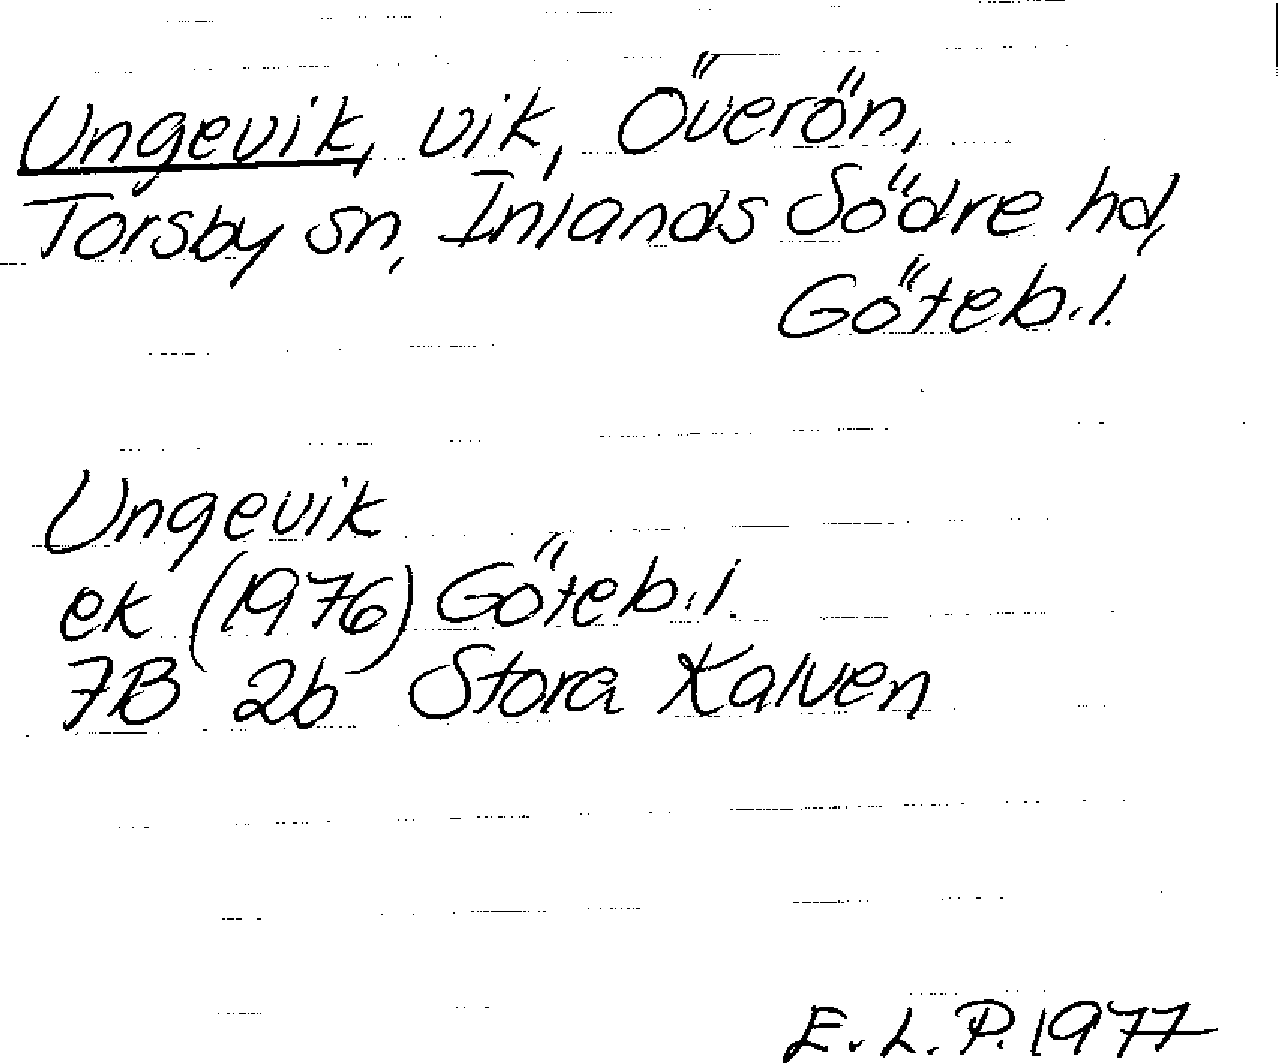 Ungevik, vik, Överön,
Torsby sn, Inlands Södre hd,
Göteb.l.
Ungevik
ek (1976) Göteb.l.
7B 2b Stora Kalven
E.L.P. 1977